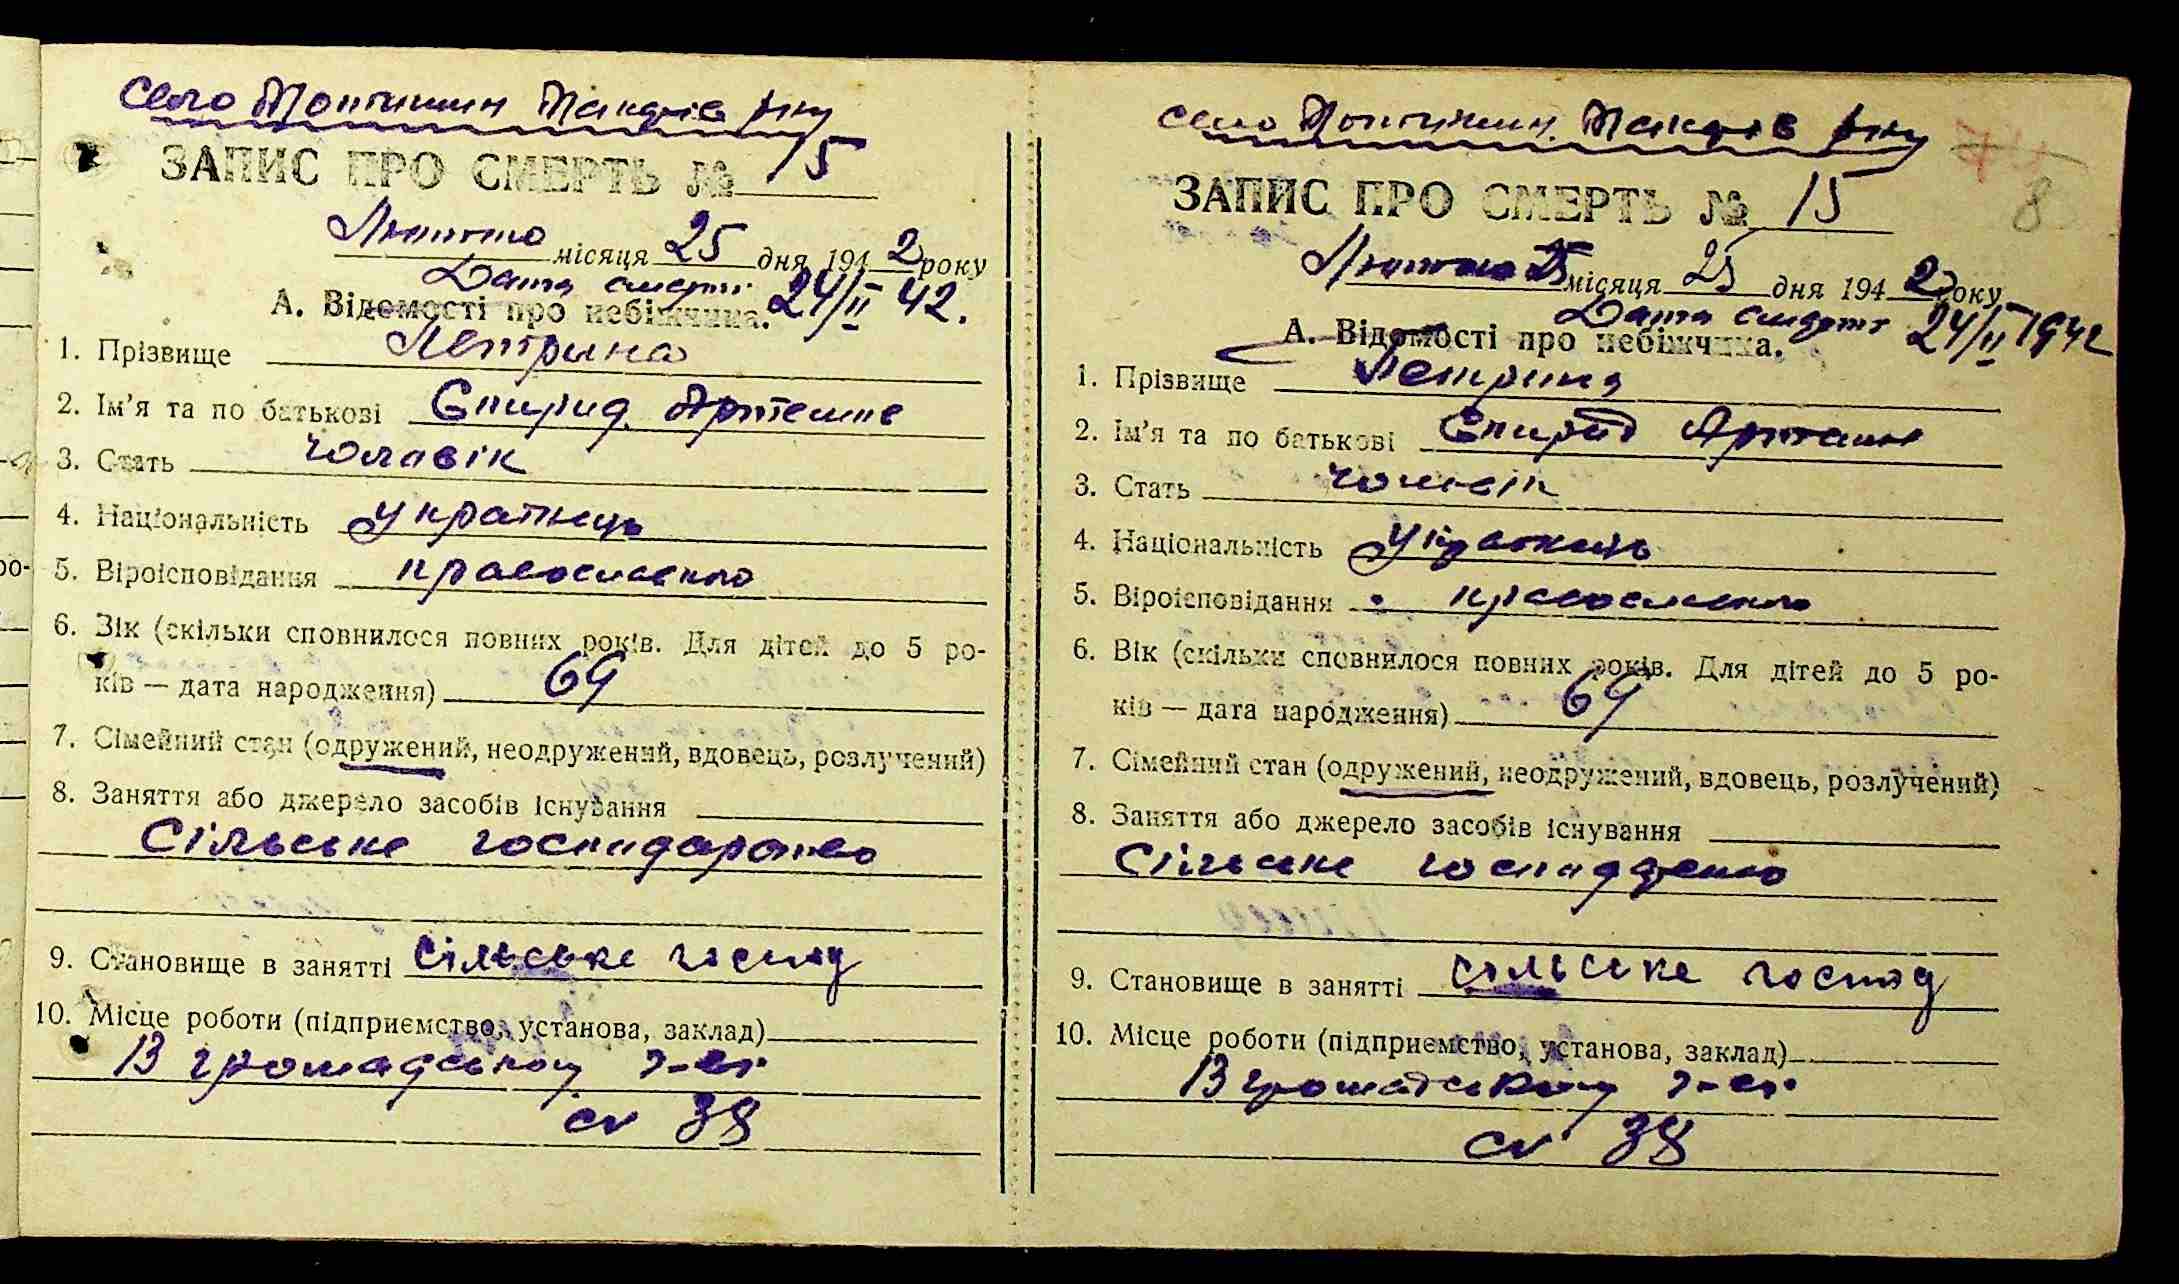 село Макарів р-ну
ЗАПИС ПРО СМЕРТЬ № 15
Лютого місяця 25 дня 1942 року
Дата смерті 24/II 42.
А. Відомості про небіжчика.
1. Прізвище Петрина
2. Ім'я та по батькові Спирид. Артемов
3. Стать чоловік
4. Національність українець
5. Віроісповідання православного
6. Вік (скільки сповнилося повних років. Для дітей до 5 ро-
ків — дата народження) 69
7. Сімейний стан (одружений, неодружений, вдовець, розлучений)
8. Заняття або джерело засобів існування
Сільське господарство
9. Становище в занятті сільське господ
10. Місце роботи (підприємство, установа, заклад)
В громадському г-ві
ст 38
село Макарів р-ну
8
ЗАПИС ПРО СМЕРТЬ № 15
Лютого 25 місяця 25 дня 1942 року
Дата смерті 24/II 1942
А. Відомості про небіжчика.
1. Прізвище Петрина
2. Ім'я та по батькові Спирид Артемов
3. Стать чоловік
4. Національність Українець
5. Віроісповідання православного
6. Вік (скільки сповнилося повних років. Для дітей до 5 ро-
ків — дата народження) 69
7. Сімейний стан (одружений, неодружений, вдовець, розлучений)
8. Заняття або джерело засобів існування
Сільське господарство
9. Становище в занятті сільське господ
10. Місце роботи (підприємство, установа, заклад)
В громадському г-ві
ст 38